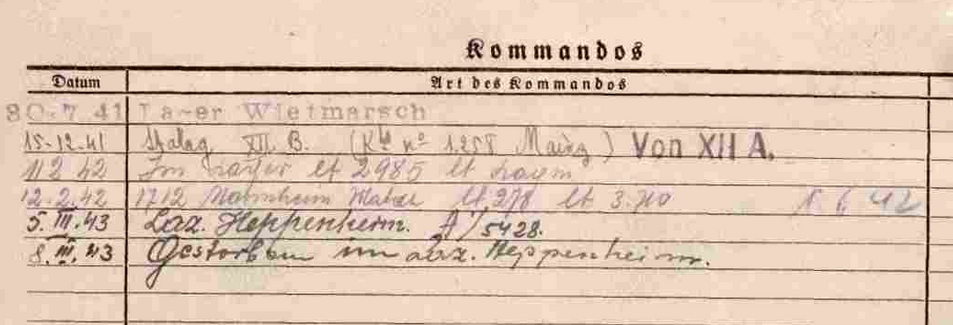 Kommandos
Datum Art des Kommandos
30.7 41 Lager Wietmarsch
15-12-41 Stalag XII B. (Kdo n° 1258 Mainz) Von XII A.
11 2 42 Im lt 2985 lt
12.2.42 1712 Mannheim lt 278 lt 3.710 1 6 42
5. III. 43 Laz. Heppenheim. A/5428.
8. III. 43 Gestorben im Laz. Heppenheim.